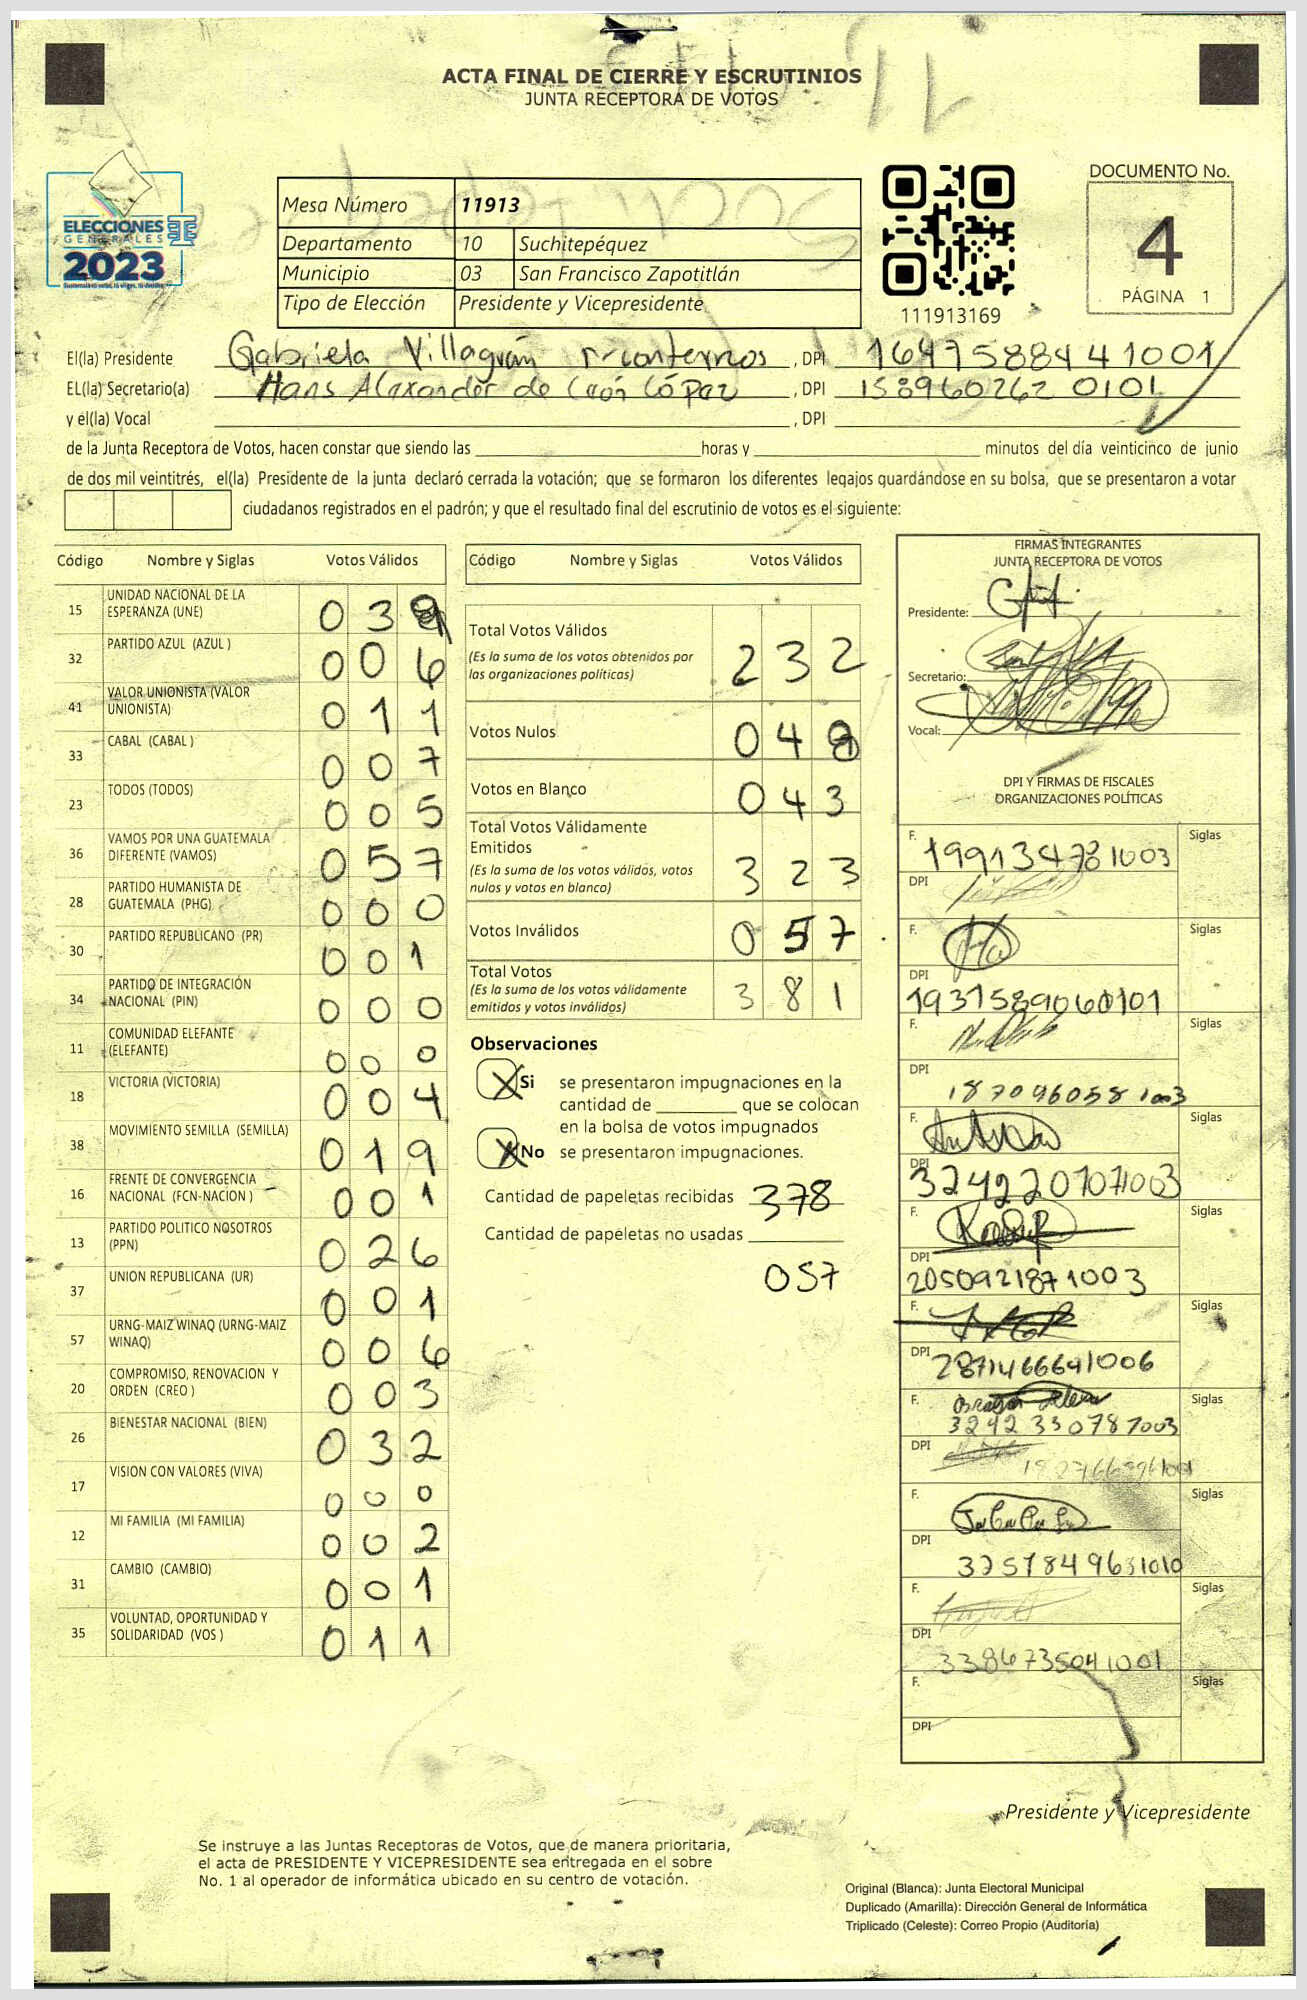 ACTA FINAL DE CIERRE Y ESCRUTINIOS
JUNTA RECEPTORA DE VOTOS
ELECCIONES
GENERALES
2023
Mesa Número 11913
Departamento 10 Suchitepéquez
Municipio 03 San Francisco Zapotitlán
Tipo de Elección Presidente y Vicepresidente
111913169
DOCUMENTO No.
4
PÁGINA 1
El(la) Presidente Gabriela Villagrán , DPI 1647588441001
EL(la) Secretario(a) Hans Alexander de León López , DPI 1589602620101
y el(la) Vocal , DPI
de la Junta Receptora de Votos, hacen constar que siendo las horas y minutos del día veinticinco de junio
de dos mil veintitrés, el(la) Presidente de la junta declaró cerrada la votación; que se formaron los diferentes legajos guardándose en su bolsa, que se presentaron a votar
ciudadanos registrados en el padrón; y que el resultado final del escrutinio de votos es el siguiente:
Código Nombre y Siglas Votos Válidos
15 UNIDAD NACIONAL DE LA
ESPERANZA (UNE) 03
32 PARTIDO AZUL (AZUL ) 006
41 VALOR UNIONISTA (VALOR
UNIONISTA) 011
33 CABAL (CABAL ) 007
23 TODOS (TODOS) 005
36 VAMOS POR UNA GUATEMALA
DIFERENTE (VAMOS) 057
28 PARTIDO HUMANISTA DE
GUATEMALA (PHG) 000
30 PARTIDO REPUBLICANO (PR) 001
34 PARTIDO DE INTEGRACIÓN
NACIONAL (PIN) 000
11 COMUNIDAD ELEFANTE
(ELEFANTE) 000
18 VICTORIA (VICTORIA) 004
38 MOVIMIENTO SEMILLA (SEMILLA) 019
16 FRENTE DE CONVERGENCIA
NACIONAL (FCN-NACION ) 001
13 PARTIDO POLITICO NOSOTROS
(PPN) 026
37 UNION REPUBLICANA (UR) 001
57 URNG-MAIZ WINAQ (URNG-MAIZ
WINAQ) 006
20 COMPROMISO, RENOVACION Y
ORDEN (CREO ) 003
26 BIENESTAR NACIONAL (BIEN) 032
17 VISION CON VALORES (VIVA) 000
12 MI FAMILIA (MI FAMILIA) 002
31 CAMBIO (CAMBIO) 001
35 VOLUNTAD, OPORTUNIDAD Y
SOLIDARIDAD (VOS ) 011
Código Nombre y Siglas Votos Válidos
Total Votos Válidos
(Es la suma de los votos obtenidos por
las organizaciones políticas) 232
Votos Nulos 048
Votos en Blanco 043
Total Votos Válidamente
Emitidos
(Es la suma de los votos válidos, votos
nulos y votos en blanco) 323
Votos Inválidos 057
Total Votos
(Es la suma de los votos válidamente
emitidos y votos inválidos) 381
Observaciones
X Si se presentaron impugnaciones en la
cantidad de que se colocan
en la bolsa de votos impugnados
X No se presentaron impugnaciones.
Cantidad de papeletas recibidas 378
Cantidad de papeletas no usadas
057
FIRMAS INTEGRANTES
JUNTA RECEPTORA DE VOTOS
Presidente:
Secretario:
Vocal:
DPI Y FIRMAS DE FISCALES
ORGANIZACIONES POLÍTICAS
F. 199134781003 Siglas
DPI
F. Siglas
DPI
1931589060101
F. Siglas
DPI
1870960581003
F. Siglas
DPI
3242207071003
F. Siglas
DPI
2050921871003
F. Siglas
DPI 2871466641006
F. Siglas
3242330787003
DPI
F. Siglas
DPI
3257849631010
F. Siglas
DPI
3386735041001
F. Siglas
DPI
Presidente y Vicepresidente
Se instruye a las Juntas Receptoras de Votos, que de manera prioritaria,
el acta de PRESIDENTE Y VICEPRESIDENTE sea entregada en el sobre
No. 1 al operador de informática ubicado en su centro de votación.
Original (Blanca): Junta Electoral Municipal
Duplicado (Amarilla): Dirección General de Informática
Triplicado (Celeste): Correo Propio (Auditoría)